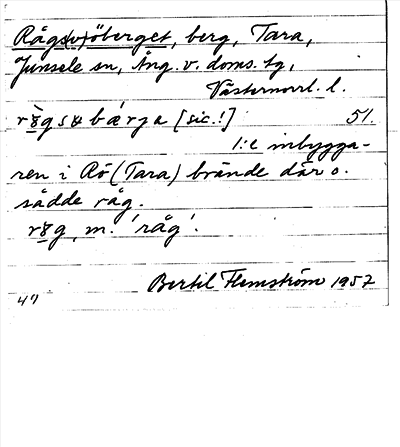 Rågs(v)öberget, berg, Tara,
Junsele sn, Ång. v. doms. tg,
Västernorrl. l.
bærja [sic!] 51.
1:e inbygga-
ren i Rö (Tara) brände där o.
sådde råg.
m. 'råg'.
Bertil Flemström 1957
47